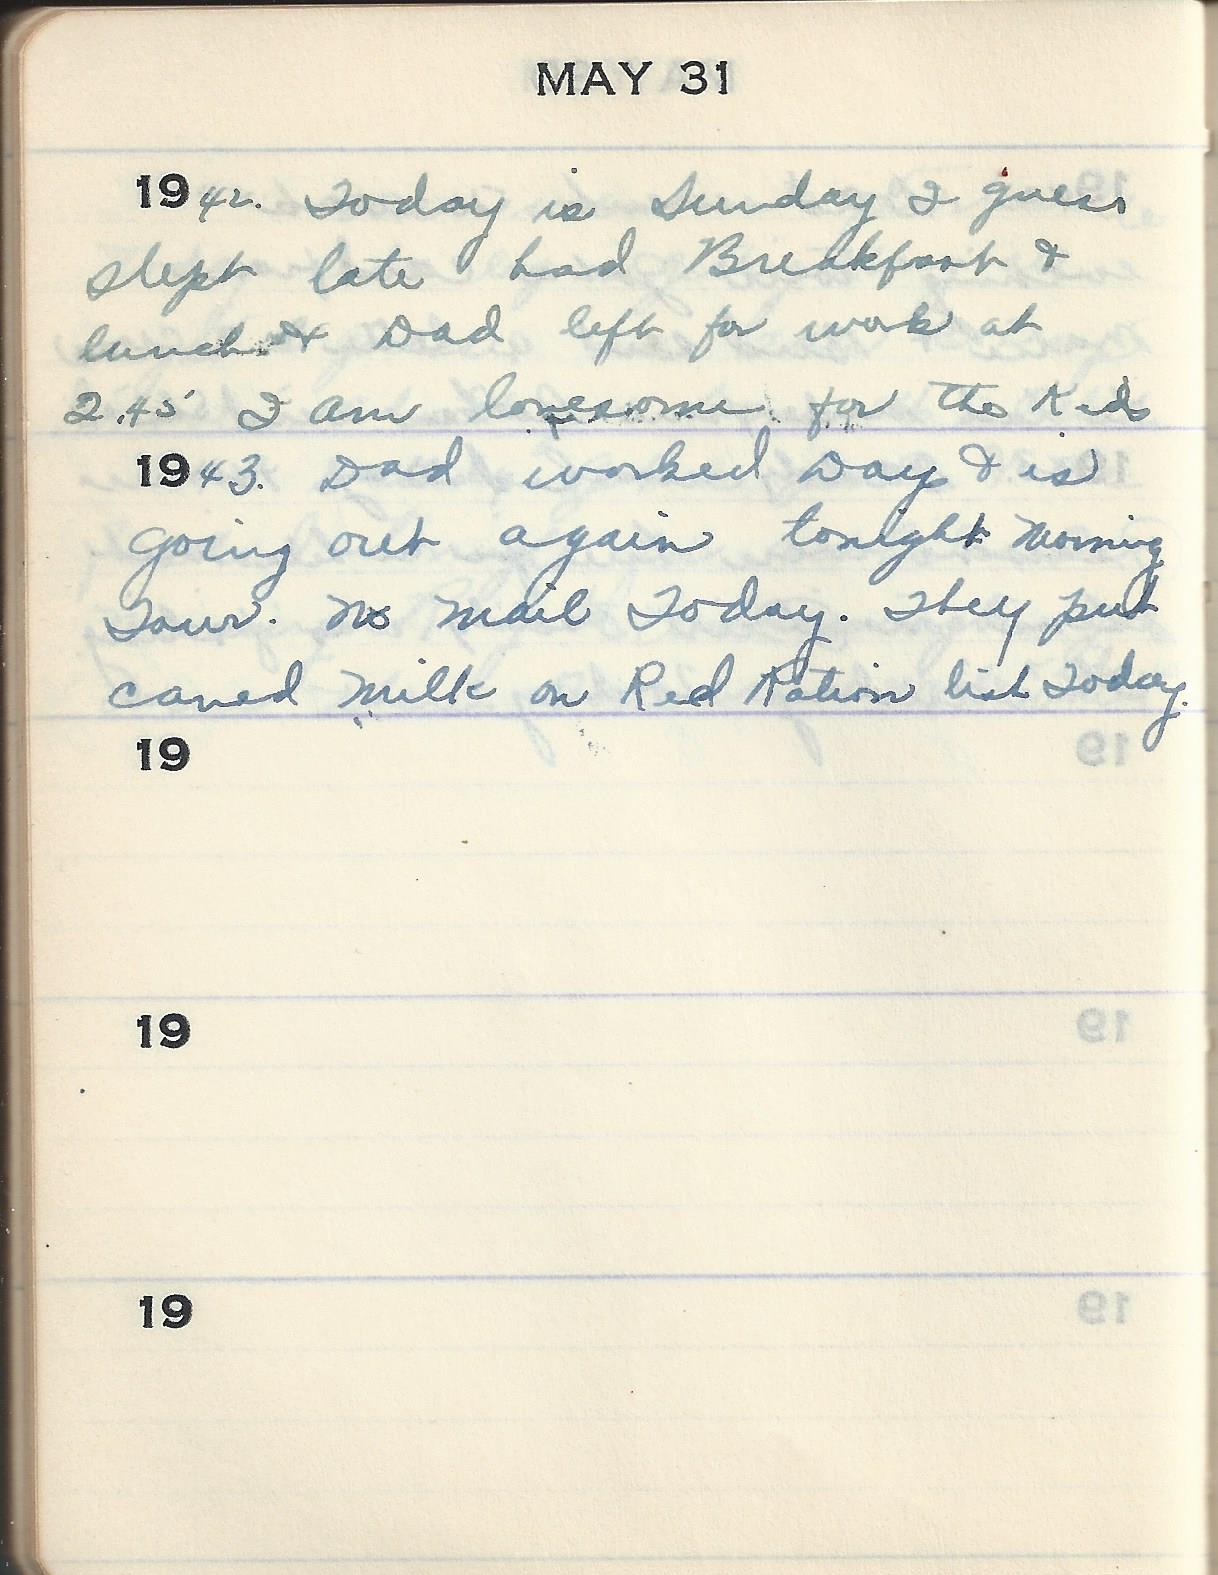 MAY 31
1942. Today is Sunday I guess
slept late had Breakfast &
lunch & Dad left for work at
2.45 I am lonesome for the Kids
1943. Dad worked Days & is
going out again tonight Morning
Tour. No Mail Today. They put
caned Milk on Red Ration list Today.
19
19
19